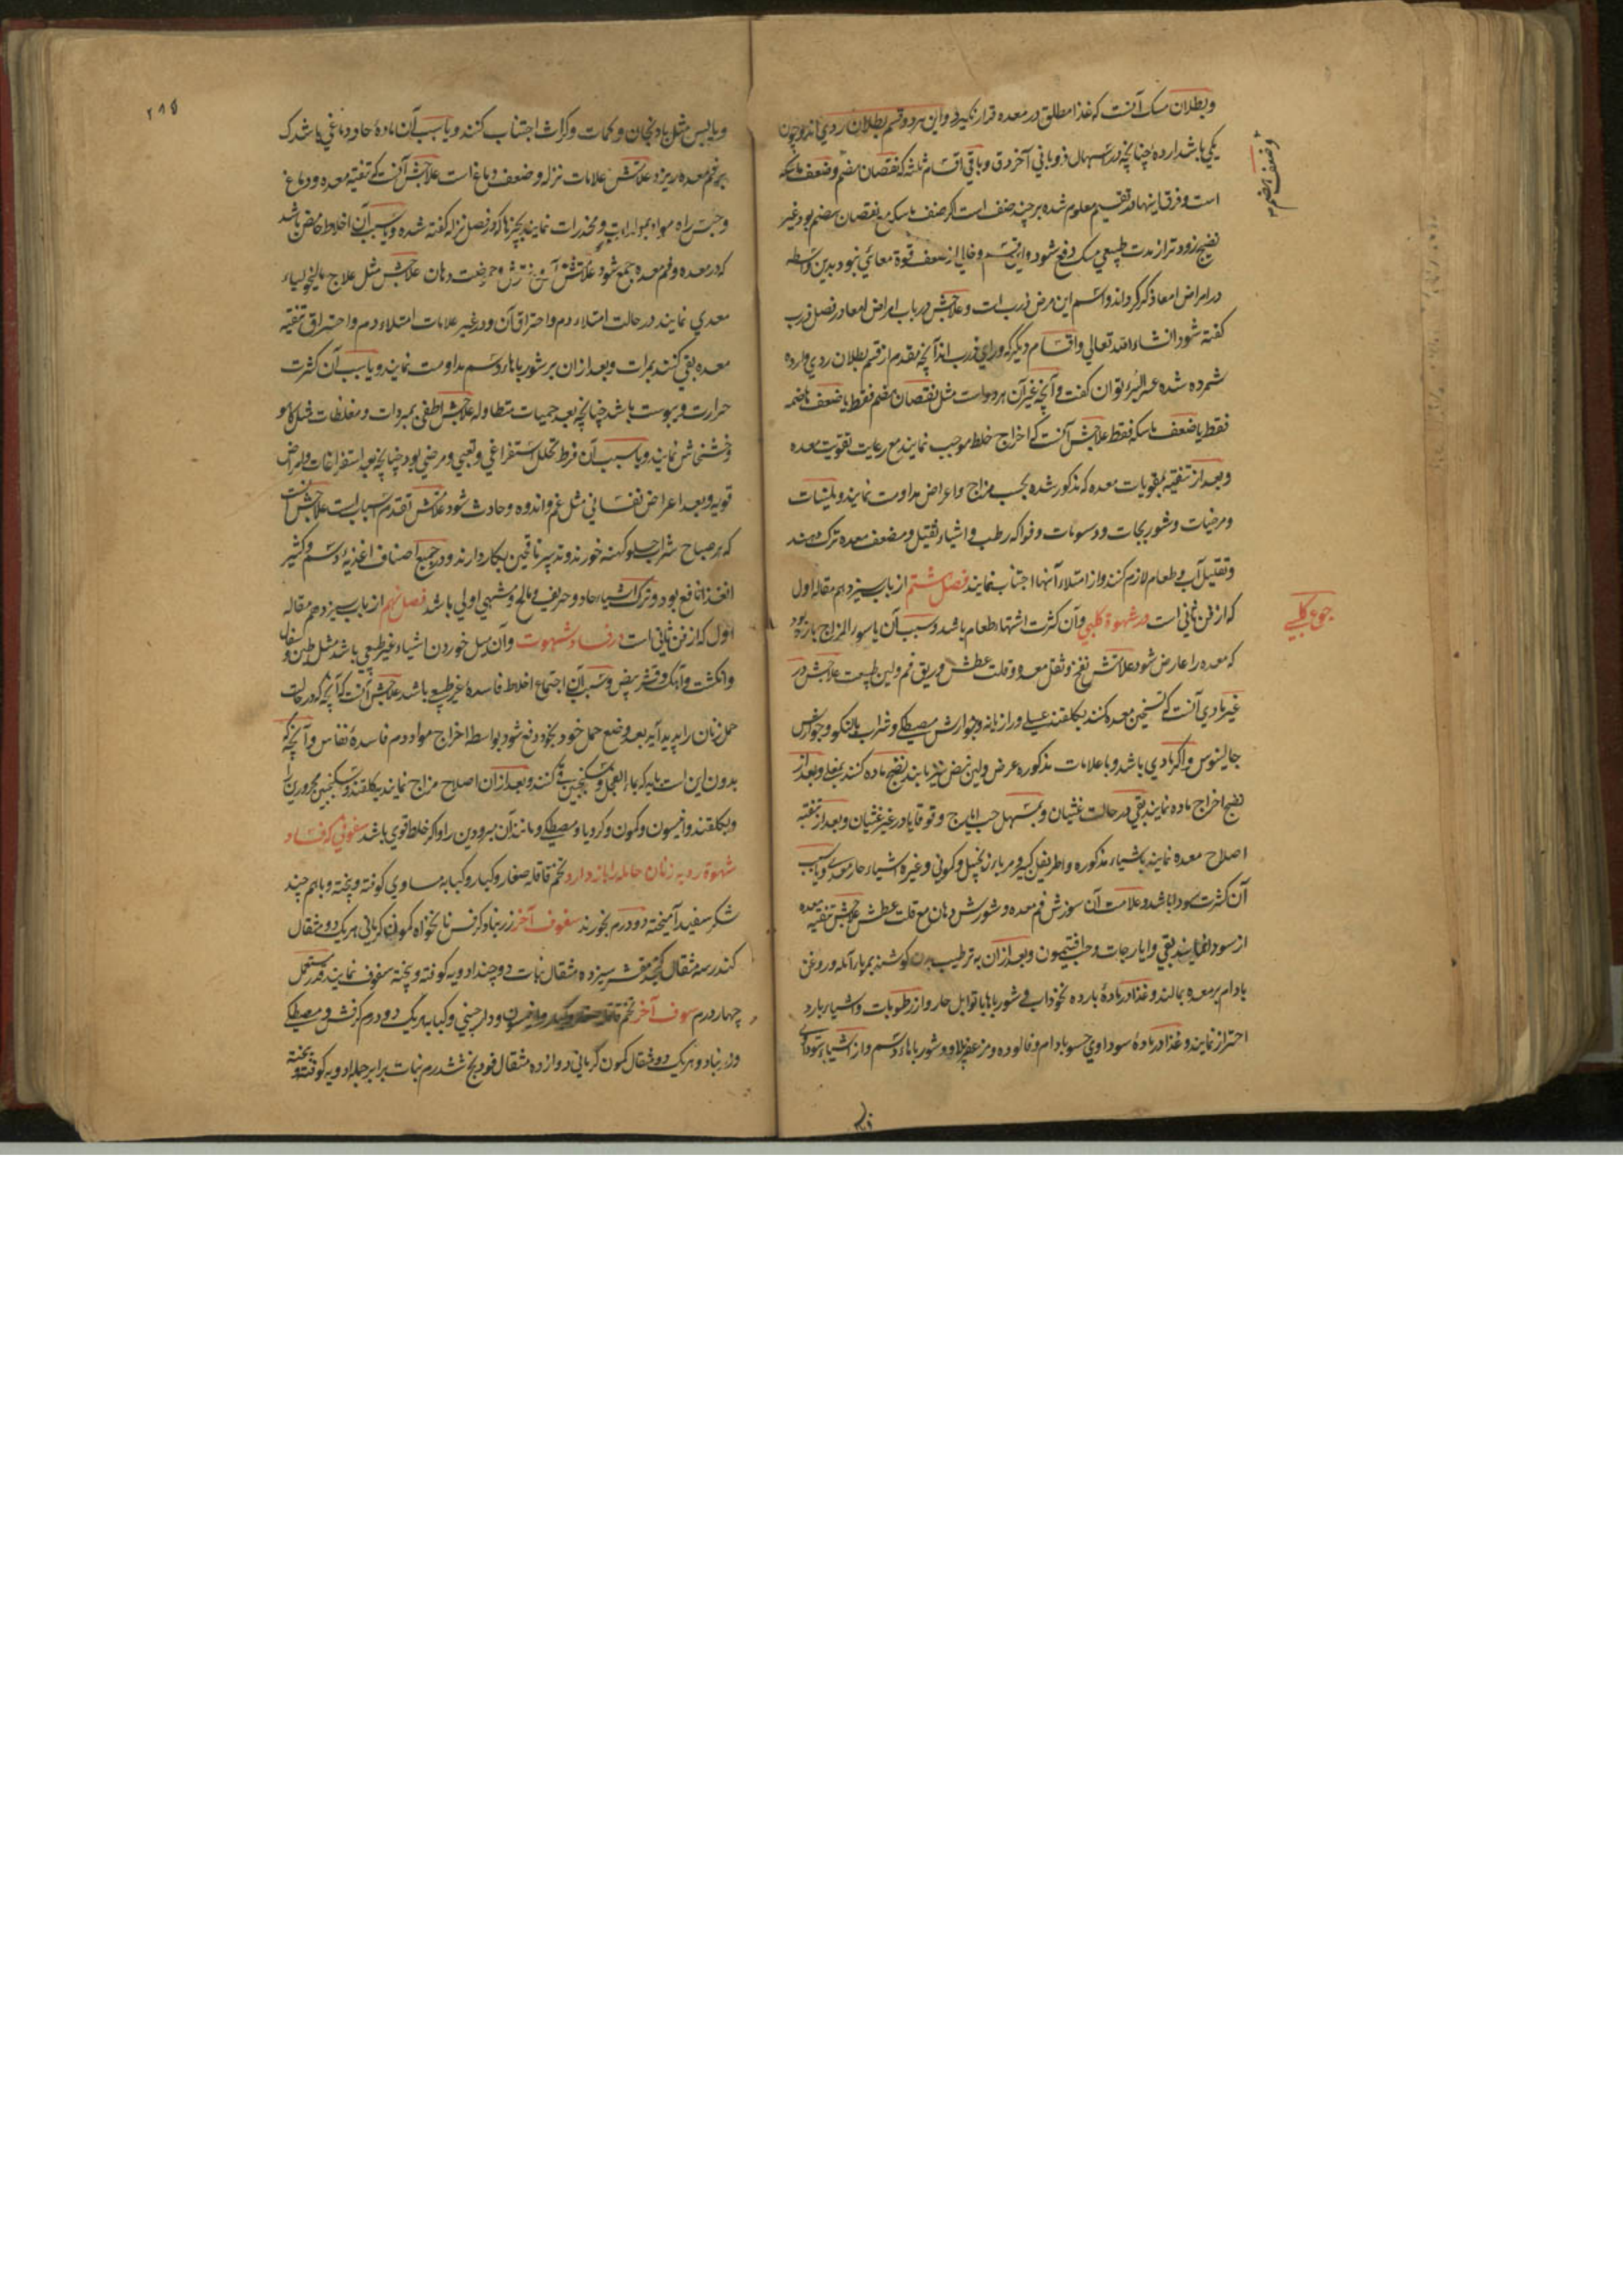 وبطلان مسک آنست که غذا مطلق در معده قرار نگیرد و این هر دو قسم بطلان ردی اند و چون
یکی باشد از ردهٔ چنانچه در اسهال ذوبانی آخر دق و باقی اقسام ثلثه که نقصان هضم و ضعف ماسکه
است و فرق اینها در تقسیم معلوم شده هر چند ضعف است اگر ضعف ماسکه مع نقصان هضم بود غیر
نضیج زودتر از مدت طبیعی مسک دفع شود و این قسم و خالی از ضعف قوة معائی نبود بدین واسطه
در امراض امعا ذکر کرده اند و اسم این مرض ذرب است و علاجش در باب امراض امعا در فصل ذرب
گفته شود انشاء الله تعالی و اقسام دیگر که ورای ذرب اند آنچه مقدم از قسم بطلان ردی وارده
شمرده شده عسر البرء توان گفت و آنچه غیر آن هر دو است مثل نقصان هضم فقط یا ضعف هاضمه
فقط یا ضعف ماسکه فقط علاجش آنست که اخراج خلط موجب نمایند مع رعایت تقویت معده
و بعد از تنقیه بمقویات معده که مذکور شده بحسب مزاج و اعراض مداومت نمایند و ملینات
و مرخیات و شوربجات و دسومات و فواکه رطب و اشیاء ثقیل و مضعف معده ترک دهند
و تقلیل آب و طعام لازم کنند و از امتلاء آنها اجتناب نمایند فصل هشتم از باب سیزدهم مقاله اول
که از فن ثانی است در شهوة کلبی و آن کثرت اشتهاء طعام باشد و سبب آن یا سوء المزاج بارد بود
که معده را عارض شود علامتش نفخ و ثقل معده و قلت عطش و ریق فم و لین طبیعت علاجش در
غیر مادی آنست که تسخین معده کنند بگلقند عسلی و رازیانه و جوارش مصطکی و شراب بالنکو و جوارش
جالینوس و اگر مادی باشد و با علامات مذکوره عرض و لین نبض نیز یابند نضج ماده کنند بمغلی و بعد از
نضج اخراج ماده نمایند بقی در حالت غثیان و بمسهل حب ایارج و قوقایا در غیر غثیان و بعد از تنقیه
اصلاح معده نمایند باشیاء مذکوره و اطریفل کبیر و مربای زنجبیل و کمونی و غیره اشیاء حار معدی و یا سبب
آن کثرت سودا باشد و علامت آن سوزش فم معده و شورش دهان مع قلت عطش علاجش تنقیه معده
از سودا نمایند بقی و ایارجات و حب افتیمون و بعد از آن به ترطیب بدن کوشند بمربای آمله و روغن
بادام بر معده بمالند و غذا در مادهٔ بارده نخوداب و شورباها با توابل حار و از رطوبات و اشیاء بارد
احتراز نمایند و غذا در مادهٔ سوداوی حسو بادام و فالوده و مزعفر پلاو و شورباهاء دسم و از اشیاء سوداوی
وضعف هضم
جوع کلبی
۲۸۵
و یابس مثل بادنجان و کمات و کراث اجتناب کنند و یا سبب آن مادهٔ حاد دماغی باشد که
بر فم معده ریزد علامتش علامات نزله و ضعف دماغ است علاجش آنست که تنقیه معده و دماغ
و حبس راه مواد و مخدرات نمایند بچیزها که در فصل نزله گفته شده و یا سبب آن اخلاط حامض باشد
که در معده و فم معده جمع شود علامتش آروغ ترش و حموضت دهان علاجش مثل علاج مالیخولیاء
معدی نمایند در حالت امتلاء دم و احتراق آن و در غیر علامات امتلاء دم و احتراق تنقیه
معده بقی کنند بمرات و بعد از آن بر شورباها دسم مداومت نمایند و یا سبب آن کثرت
حرارت و یبوست باشد چنانچه بعد حمیات متطاوله علاجش اطفی بمبردات و مغلظات مثل کاهو
و خشخاش نمایند و یا سبب آن فرط تحلل استفراغی و تعبی و مرضی بود چنانچه بعد استفراغات و امراض
قویه و بعد اعراض نفسانی مثل غم و اندوه و حادث شود علامتش تقدم اسباب است علاجش آنست
که هر صباح شراب حلو کهنه خورند و تدبیر ناقهین بکار دارند و در جمیع اصناف اغذیهٔ دسم و کثیر
الغذا نافع بود و ترک اشیاء حاد و حریف و مالح و مشهی اولی باشد فصل نهم از باب سیزدهم مقاله
اول که از فن ثانی است در فساد شهوت و آن میل خوردن اشیاء غیر طبیعی باشد مثل طین و سفال
و انگشت و آهک و قشر بیض و سبب آن اجتماع اخلاط فاسدهٔ غیر طبیعی باشد علاجش آنست که آنچه که در حالت
حمل زنان را پدید آید بعد وضع حمل خود بخود دفع شود بواسطهٔ اخراج مواد دم فاسدهٔ نفاس و آنچه که
بدون این است باید که بماء الفجل و سکنجبین قی کنند و بعد از آن اصلاح مزاج نمایند بگلقند و سکنجبین محرورین را
و بگلقند و انیسون و کمون و کرویا و مصطکی و مانند آن مبرودین را و اگر خلط قوی باشد سفوفی که فساد
شهوة ردیه زنان حامله را باز دارد تخم قاقله صغار و کبار و کبابه مساوی کوفته و بیخته و با هم چند
شکر سفید آمیخته دو درم بخورند سفوف آخر زرنباد کرفس نانخواه کمون کرمانی هر یک دو مثقال
کندر سه مثقال کنجد مقشر سیزده مثقال نبات دو چند ادویه کوفته و بیخته سفوف نمایند قدر مستعمل
چهار درم سوف آخر تخم قاقله صغار و کبار و انیسون و دارچینی و کبابه هر یک دو درم کرفس و مصطکی
و زرنباد و هر یک دو مثقال کمون کرمانی دوازده مثقال فودنج شش درم نبات برابر جمله ادویه کوفته و بیخته